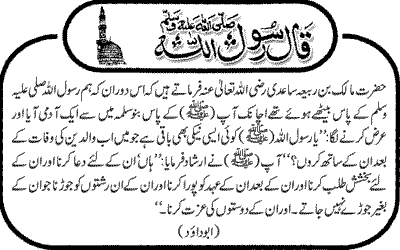 قال رسول اللہ صلی اللہ علیہ وسلم
حضرت مالک بن ربیعہ ساعدی رضی اللہ تعالیٰ عنہ فرماتے ہیں کہ اس دوران کہ ہم رسول اللہ صلی علیہ
وسلم کے پاس بیٹھے ہوئے تھے اچانک آپ (ﷺ) کے پاس بنو سلمہ میں سے ایک آدمی آیا اور
عرض کرنے لگا: ’’یا رسول اللہ (ﷺ) کوئی ایسی نیکی بھی باقی ہے جو میں اب والدین کی وفات کے
بعد ان کے ساتھ کروں؟‘‘ آپ (ﷺ) نے ارشاد فرمایا: ’’ہاں ان کے لئے دعا کرنا اور ان کے
لئے بخشش طلب کرنا اور ان کے بعد ان کے عہد کو پورا کرنا اور ان کے ان رشتوں کو جوڑنا جو ان کے
بغیر جوڑے نہیں جاتے۔ اور ان کے دوستوں کی عزت کرنا۔‘‘
(ابوداؤد)